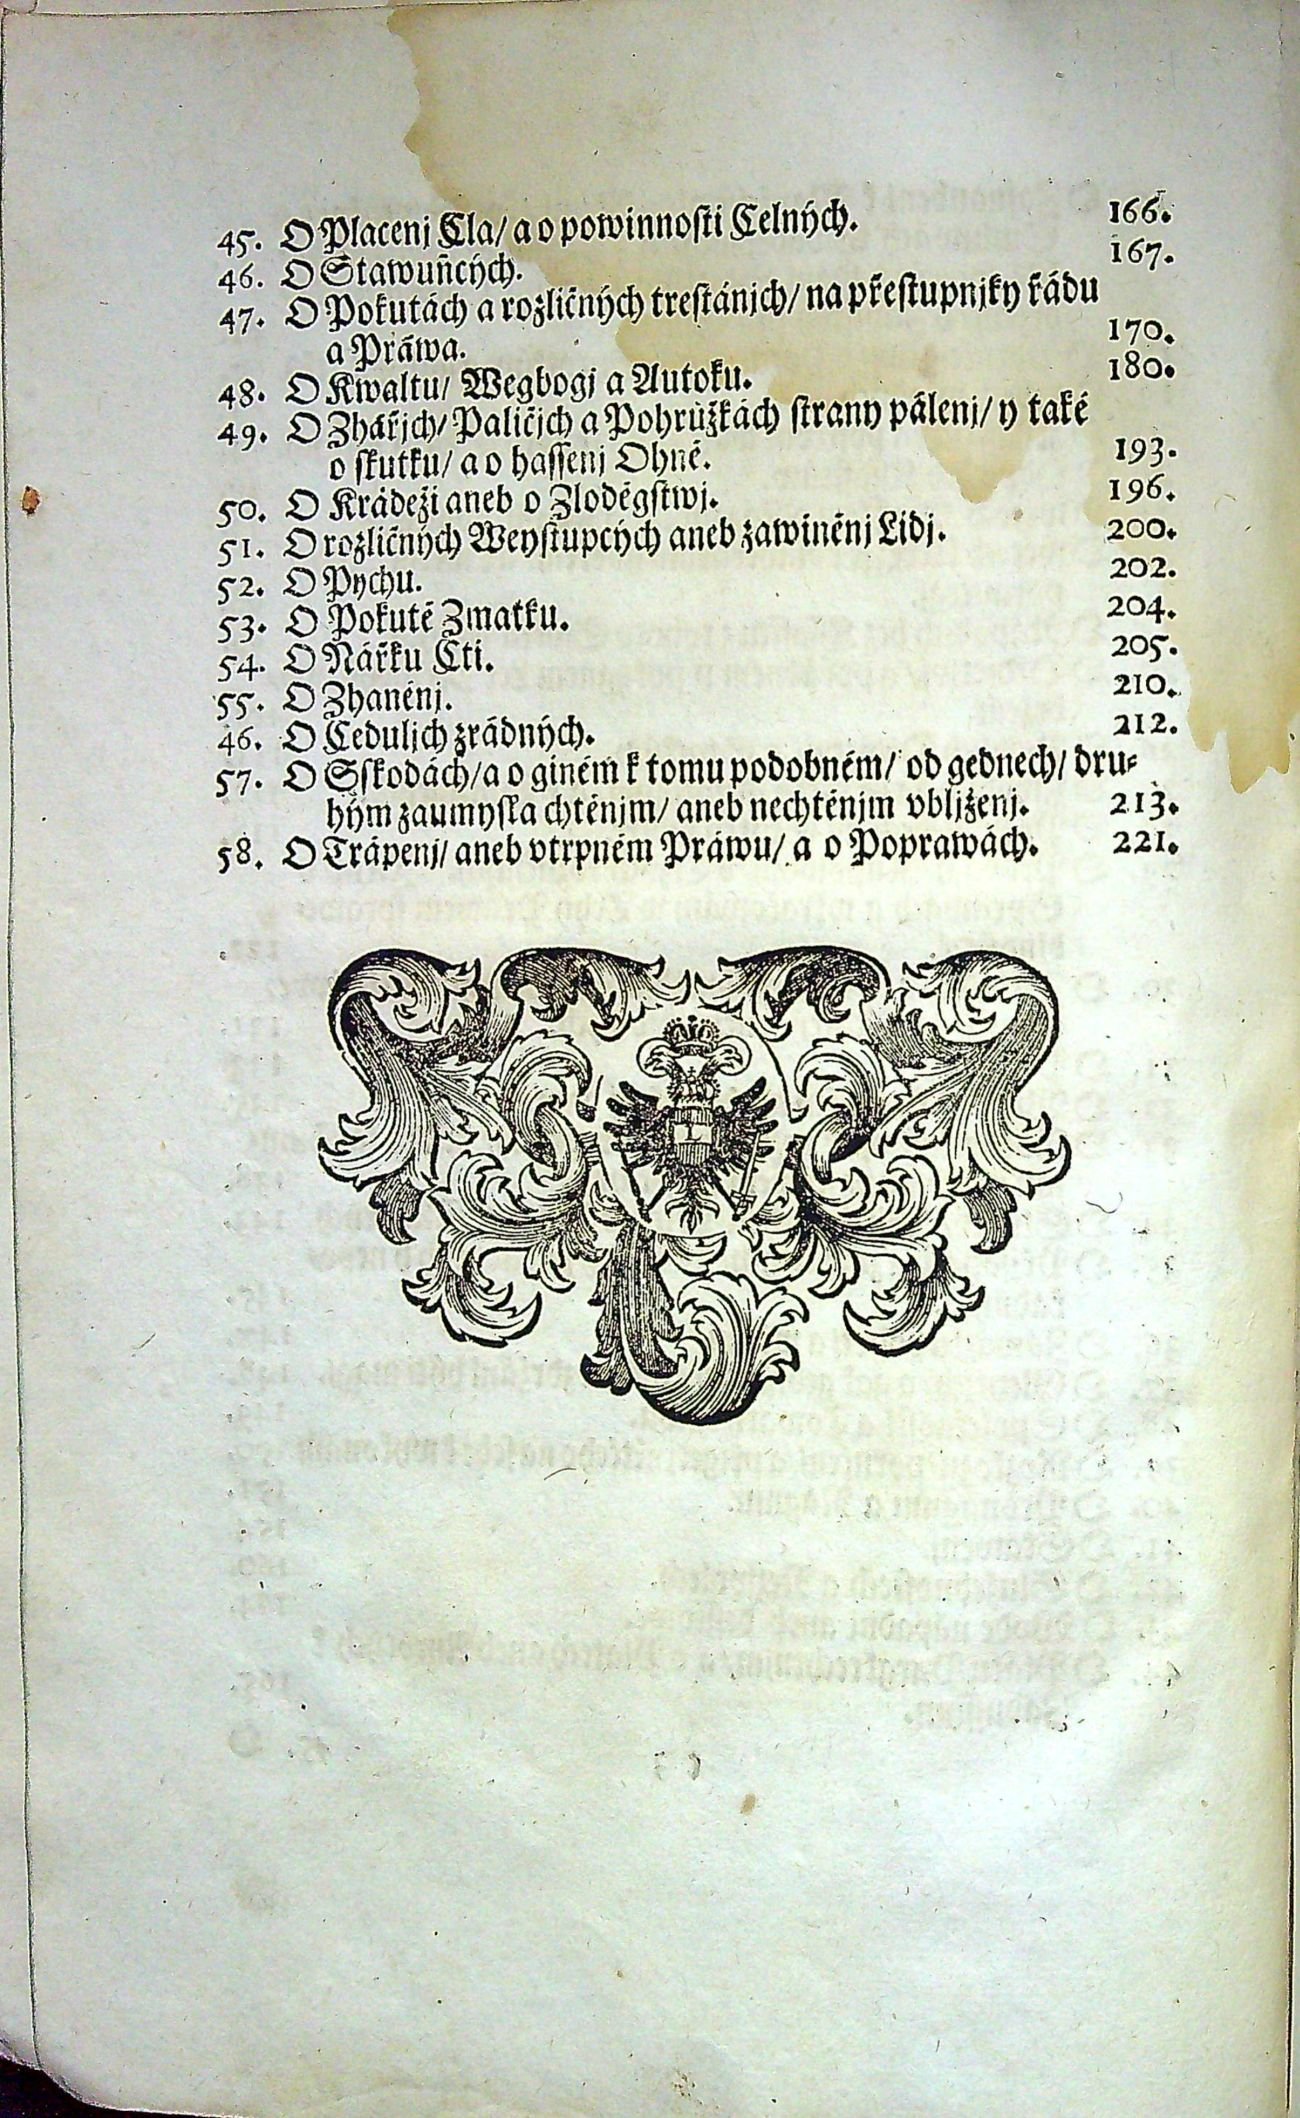 45. O Placenj Cla/ a o powinnosti Celných. 166.
46. O Stawuňcých. 167.
47. O Pokutách a rozličných trestánjch/ na přestupnjky řádu
a Práwa. 170.
48. O Kwaltu/ Wegbogj a Autoku. 180.
49. O Zhářjch/ Paličjch a Pohrůžkách strany pálenj/ y také
o skutku/ a o hassenj Ohně. 193.
50. O Krádeži aneb o Zloděgstwj. 196.
51. O rozličných Weystupcých aneb zawiněnj Lidj. 200.
52. O Pychu. 202.
53. O Pokutě Zmatku. 204.
54. O Nářku Cti. 205.
55. O Zhaněnj. 210.
46. O Ceduljch zrádných. 212.
57. O Sskodách/ a o giném k tomu podobném/ od gedněch/ dru-
hým zaumysla chtěnjm/ aneb nechtěnjm vbljženj. 213.
58. O Trápenj/ aneb vtrpném Práwu/ a o Poprawách. 221.
L